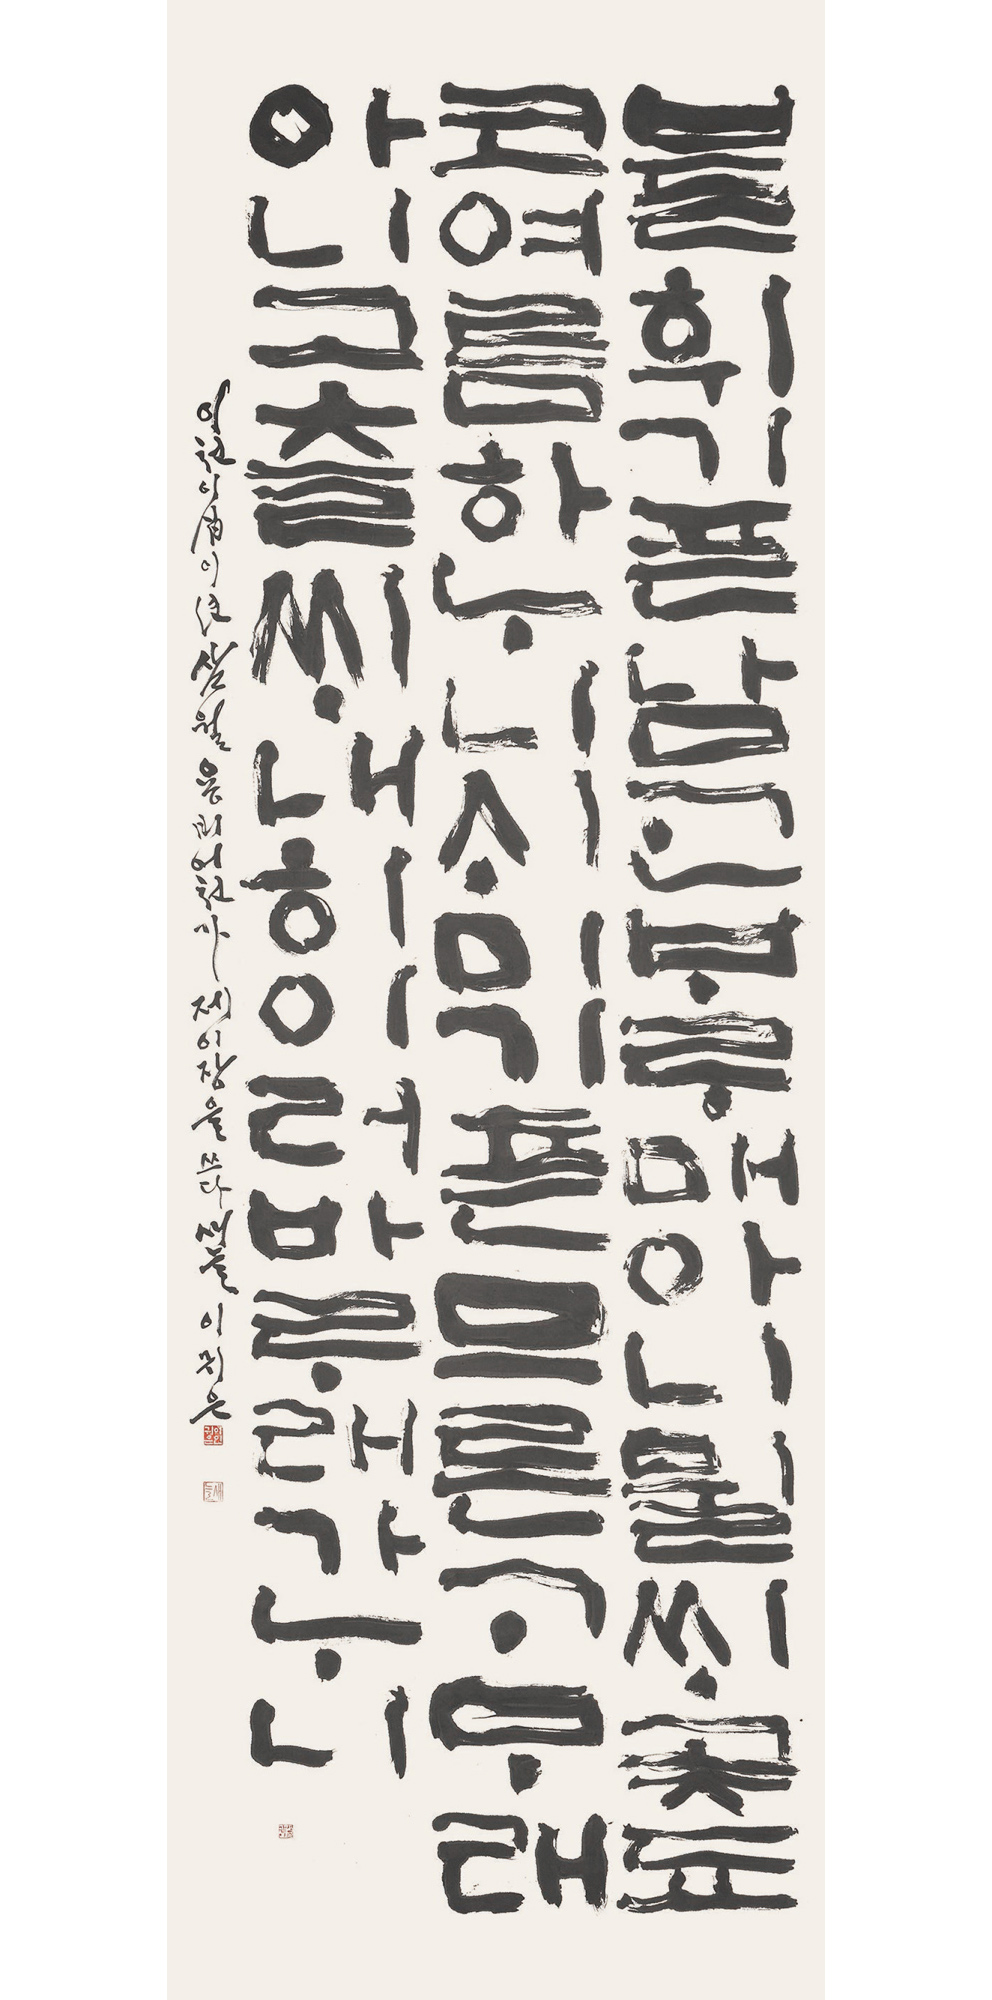 블휘기픈남ᄀᆞᆫᄇᆞᄅᆞ매아니뮐ᄊᆡ곶됴
코여름하ᄂᆞ니ᄉᆡ미기픈므른ᄀᆞᄆᆞ래
아니그츨ᄊᆡ내히이러바ᄅᆞ래가ᄂᆞ니
이천이십이년 삼월 용비어천가 제이장을 쓰다